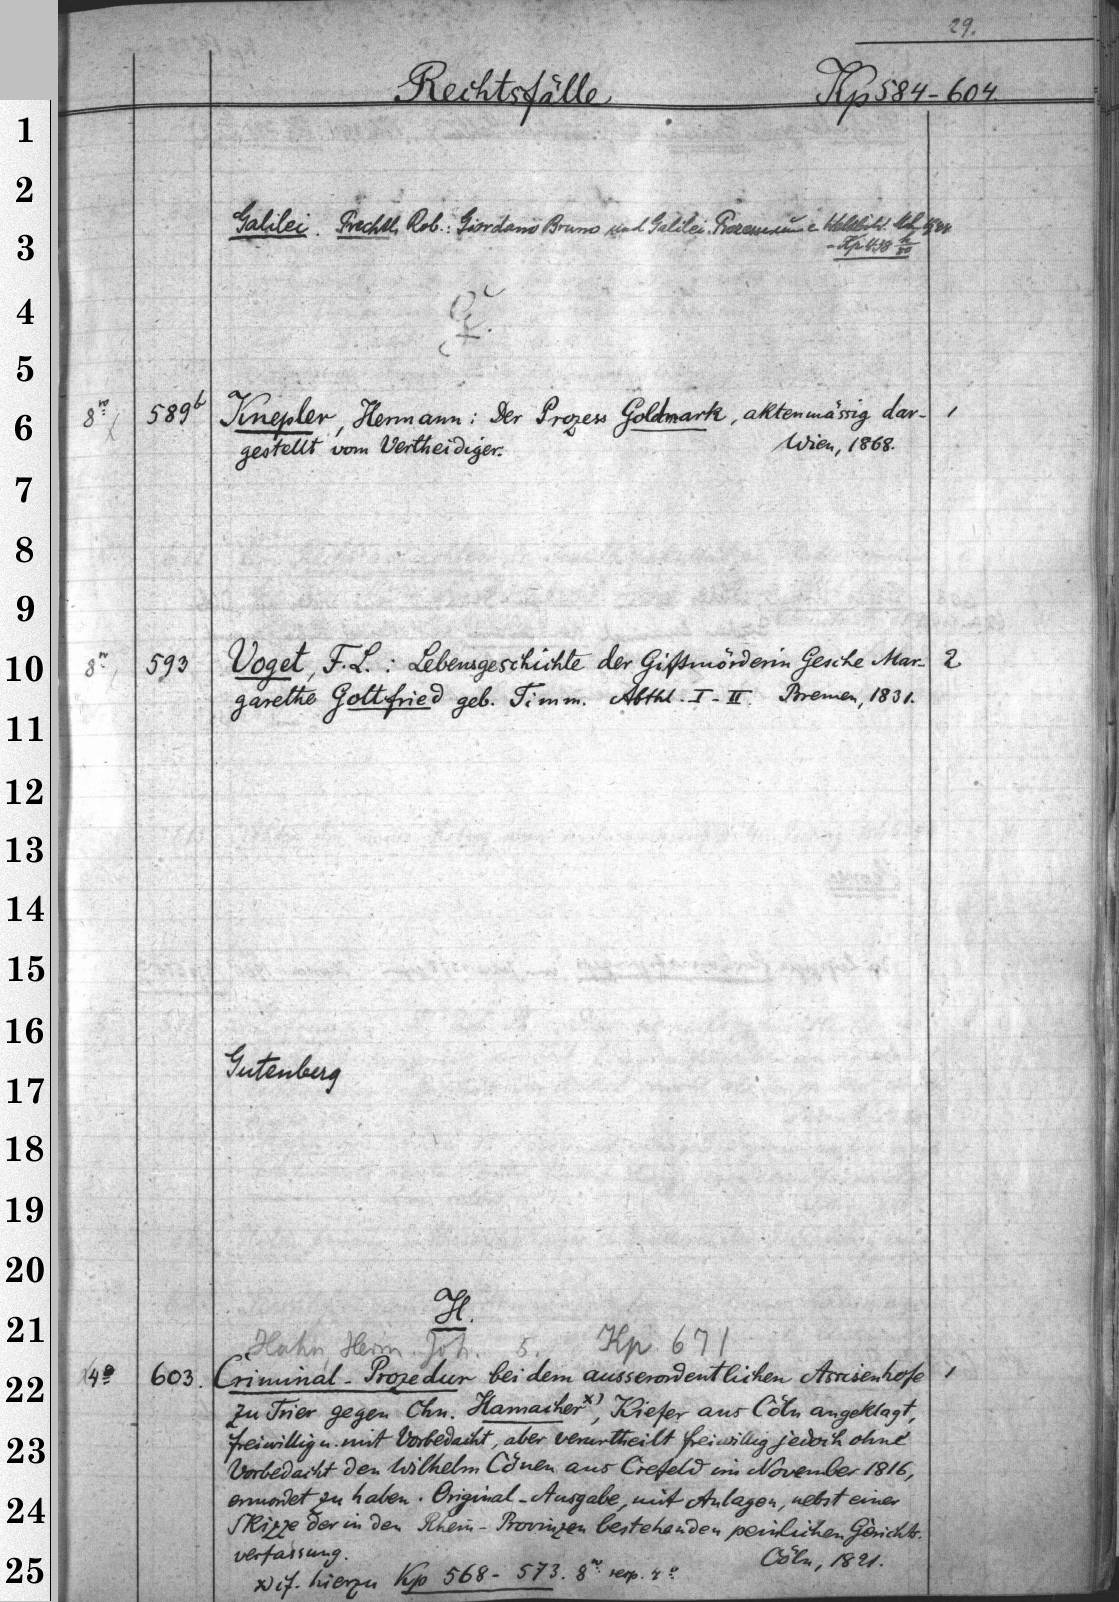 29.
Rechtsfälle Kp 584-604.
1
2
Galilei. Frechtl, Rob.: Giordano Bruno und Galilei. Prozesse
3 - Kp 438
4
5
8° 589b Knepler, Hermann: Der Prozess Goldmark, aktenmässig dar- 1
6
gestellt vom Vertheidiger. Wien, 1868.
7
8
9
8° 593 Voget, F.L.: Lebensgeschichte der Giftmörderin Gesche Mar- 2
10
garethe Gottfried geb. Timm. Abthl. I-II. Bremen, 1831.
11
12
13
14
15
16
Gutenberg
17
18
19
20
H.
21
Hahn, Herm. Joh. S. Kp 671
4° 603. Criminal-Prozedur bei dem ausserordentlichen Assisenhofe 1
22
zu Trier gegen Chn. Hamacher x), Kiefer aus Cöln angeklagt,
freiwillig u. mit Vorbedacht, aber verurtheilt freiwillig jedoch ohne
23
Vorbedacht den Wilhelm Cönen aus Crefeld im November 1816,
ermordet zu haben. Original-Ausgabe, mit Anlagen, nebst einer
24
Skizze der in den Rhein-Provinzen bestehenden peinlichen Gerichts-
verfassung. Cöln, 1821.
25
x) cf. hierzu Kp 568-573. 8° resp. 4°